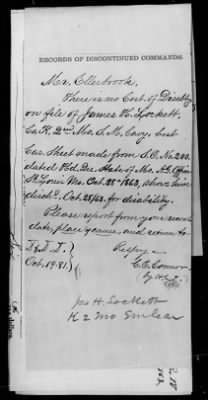 RECORDS OF DISCONTINUED COMMANDS.
Mr. Ellerbrook.
There is no Cert. of Disability
on file of James H. Lockett,
Co. K. 2nd Mo. S. M. Cavy. but
Cas. Sheet made from S.O. No. 200.
dated Hd. Qrs. State of Mo. A.G. Office
St. Louis Mo. Oct. 28th 1863, shows him
disch'd. Oct. 28/63. for disability.
Please report from your
date, place & cause, and return to
Respy
Oct. 19. 81.
C. C. Connor
Jas H. Lockett
K 2 Mo Sm Cav